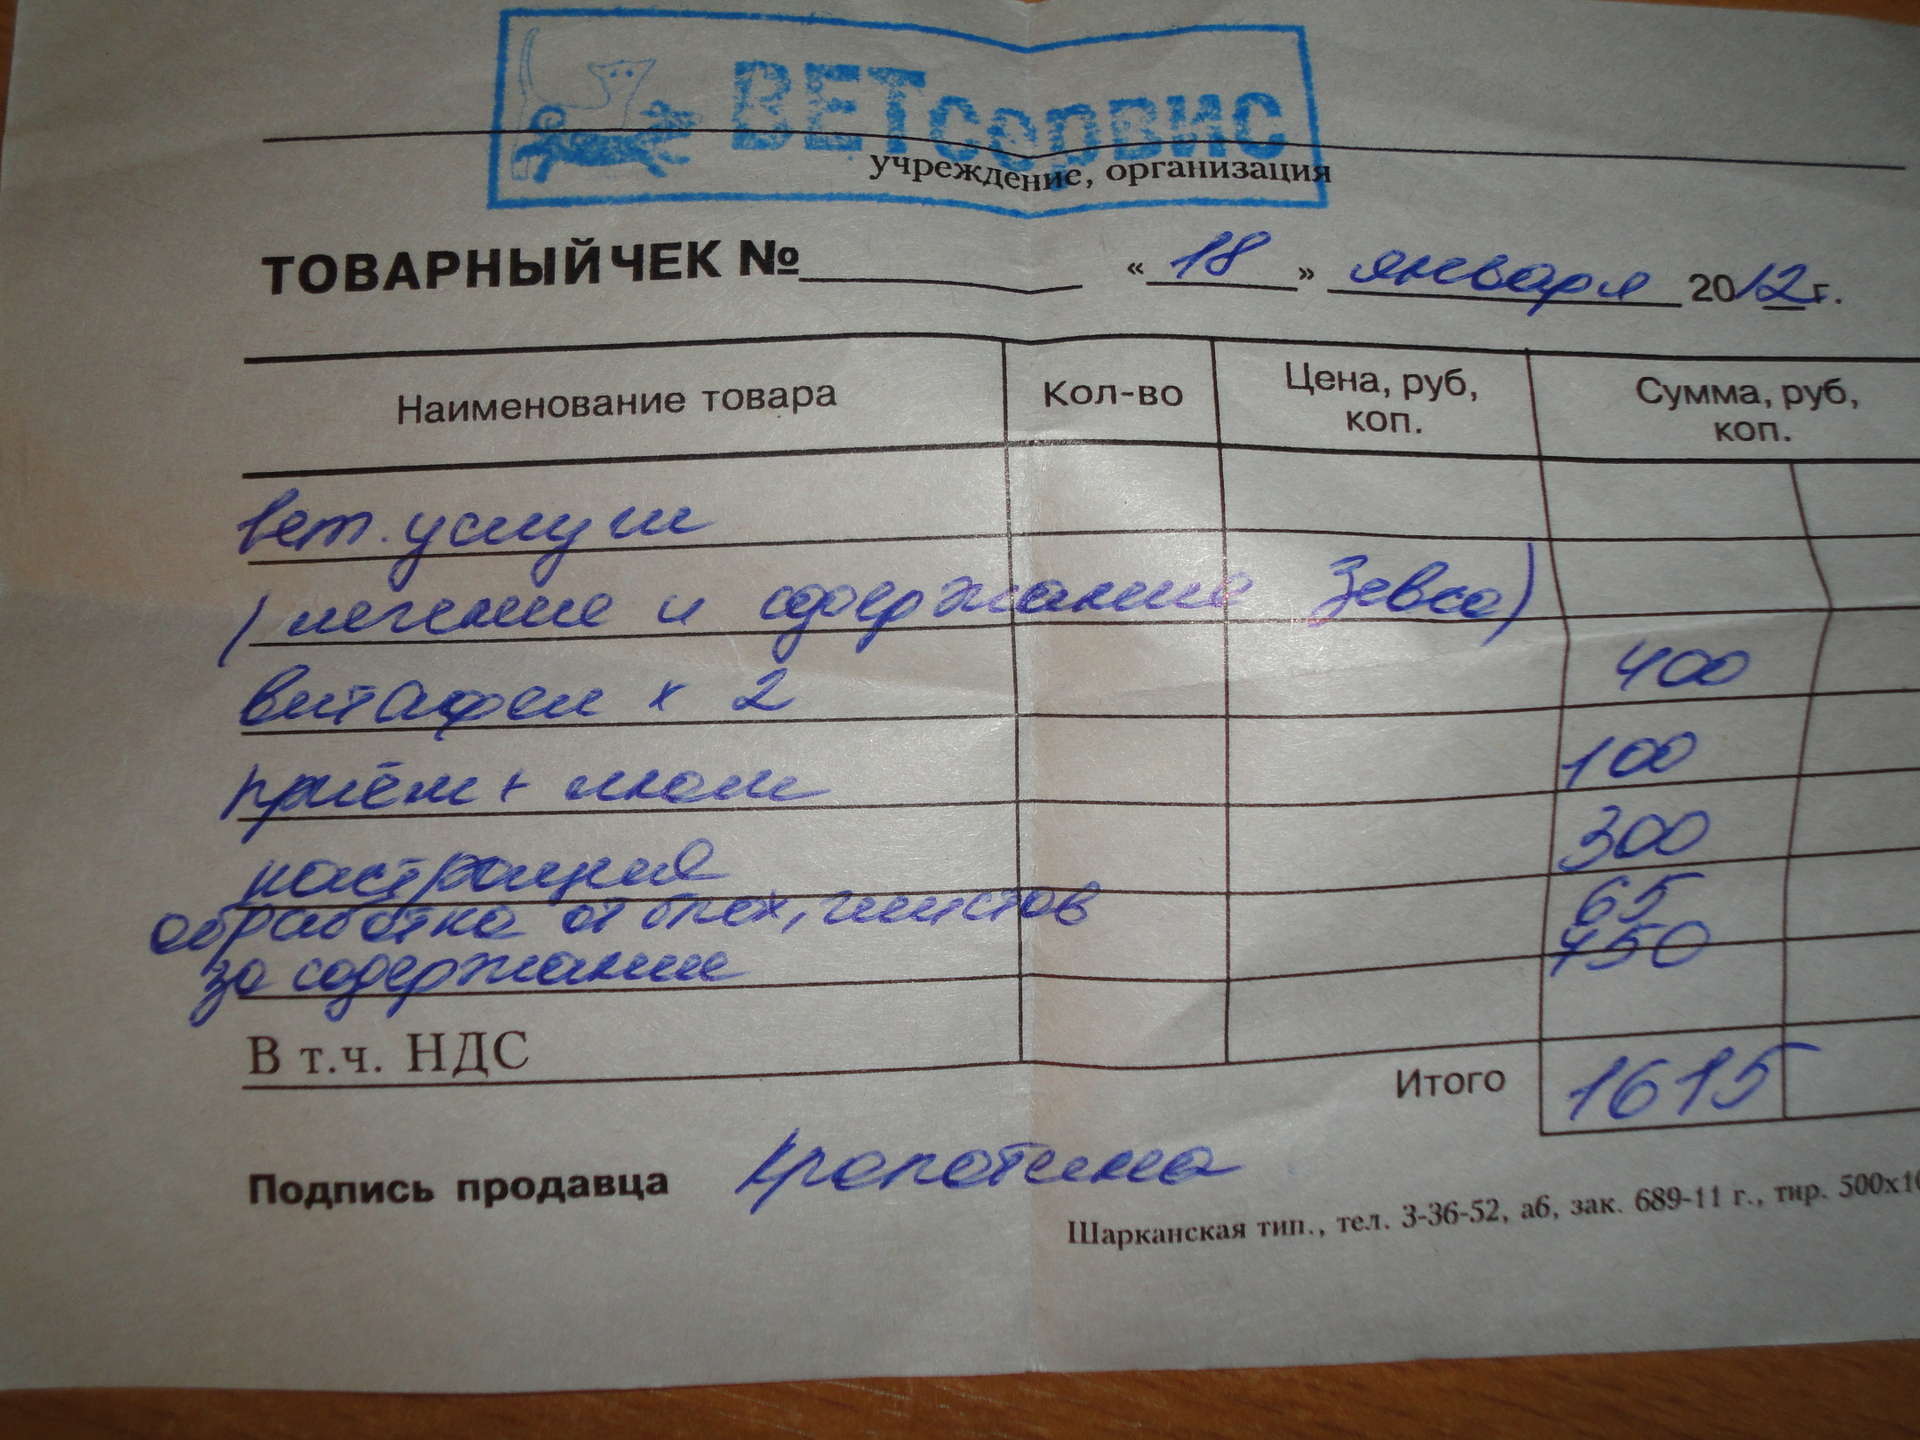 ВЕТсервис
учреждение, организация
ТОВАРНЫЙ ЧЕК № « 18 » января 2012г.
Наименование товара Кол-во Цена, руб, коп. Сумма, руб, коп.
вет. услуги
(лечение и содержание Зевса)
витафел х 2 400
приём + 100
кастрация 300
обработка от блох, глистов 65
за содержание 750
В т.ч. НДС
Итого 1615
Подпись продавца Кропотина
Шарканская тип., тел. 3-36-52, а6, зак. 689-11 г., тир. 500х10